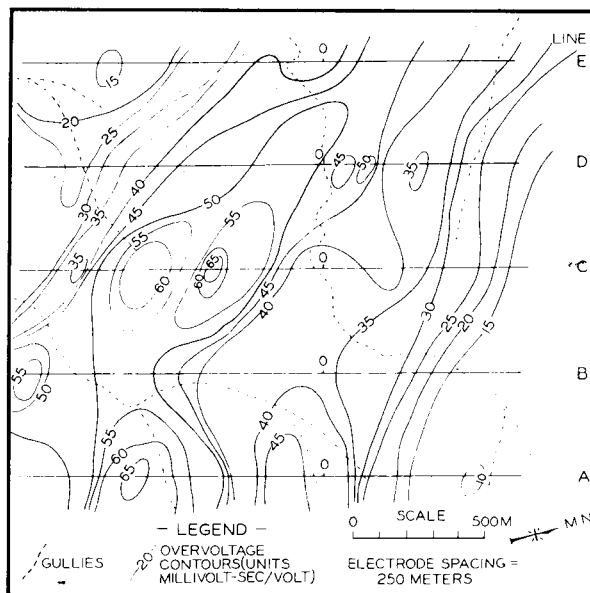 LINE
0 E
15
20
25
40
45
0 45 50 35 D
30
35
50
55
55
35
60 60 65
0 C
45
40
35
30
25
20
15
55
50
0 B
55
60
65
40
45
0 10 A
- LEGEND -
GULLIES
20 OVERVOLTAGE
CONTOURS(UNITS
MILLIVOLT-SEC/VOLT)
SCALE
0 500M
M N
ELECTRODE SPACING =
250 METERS